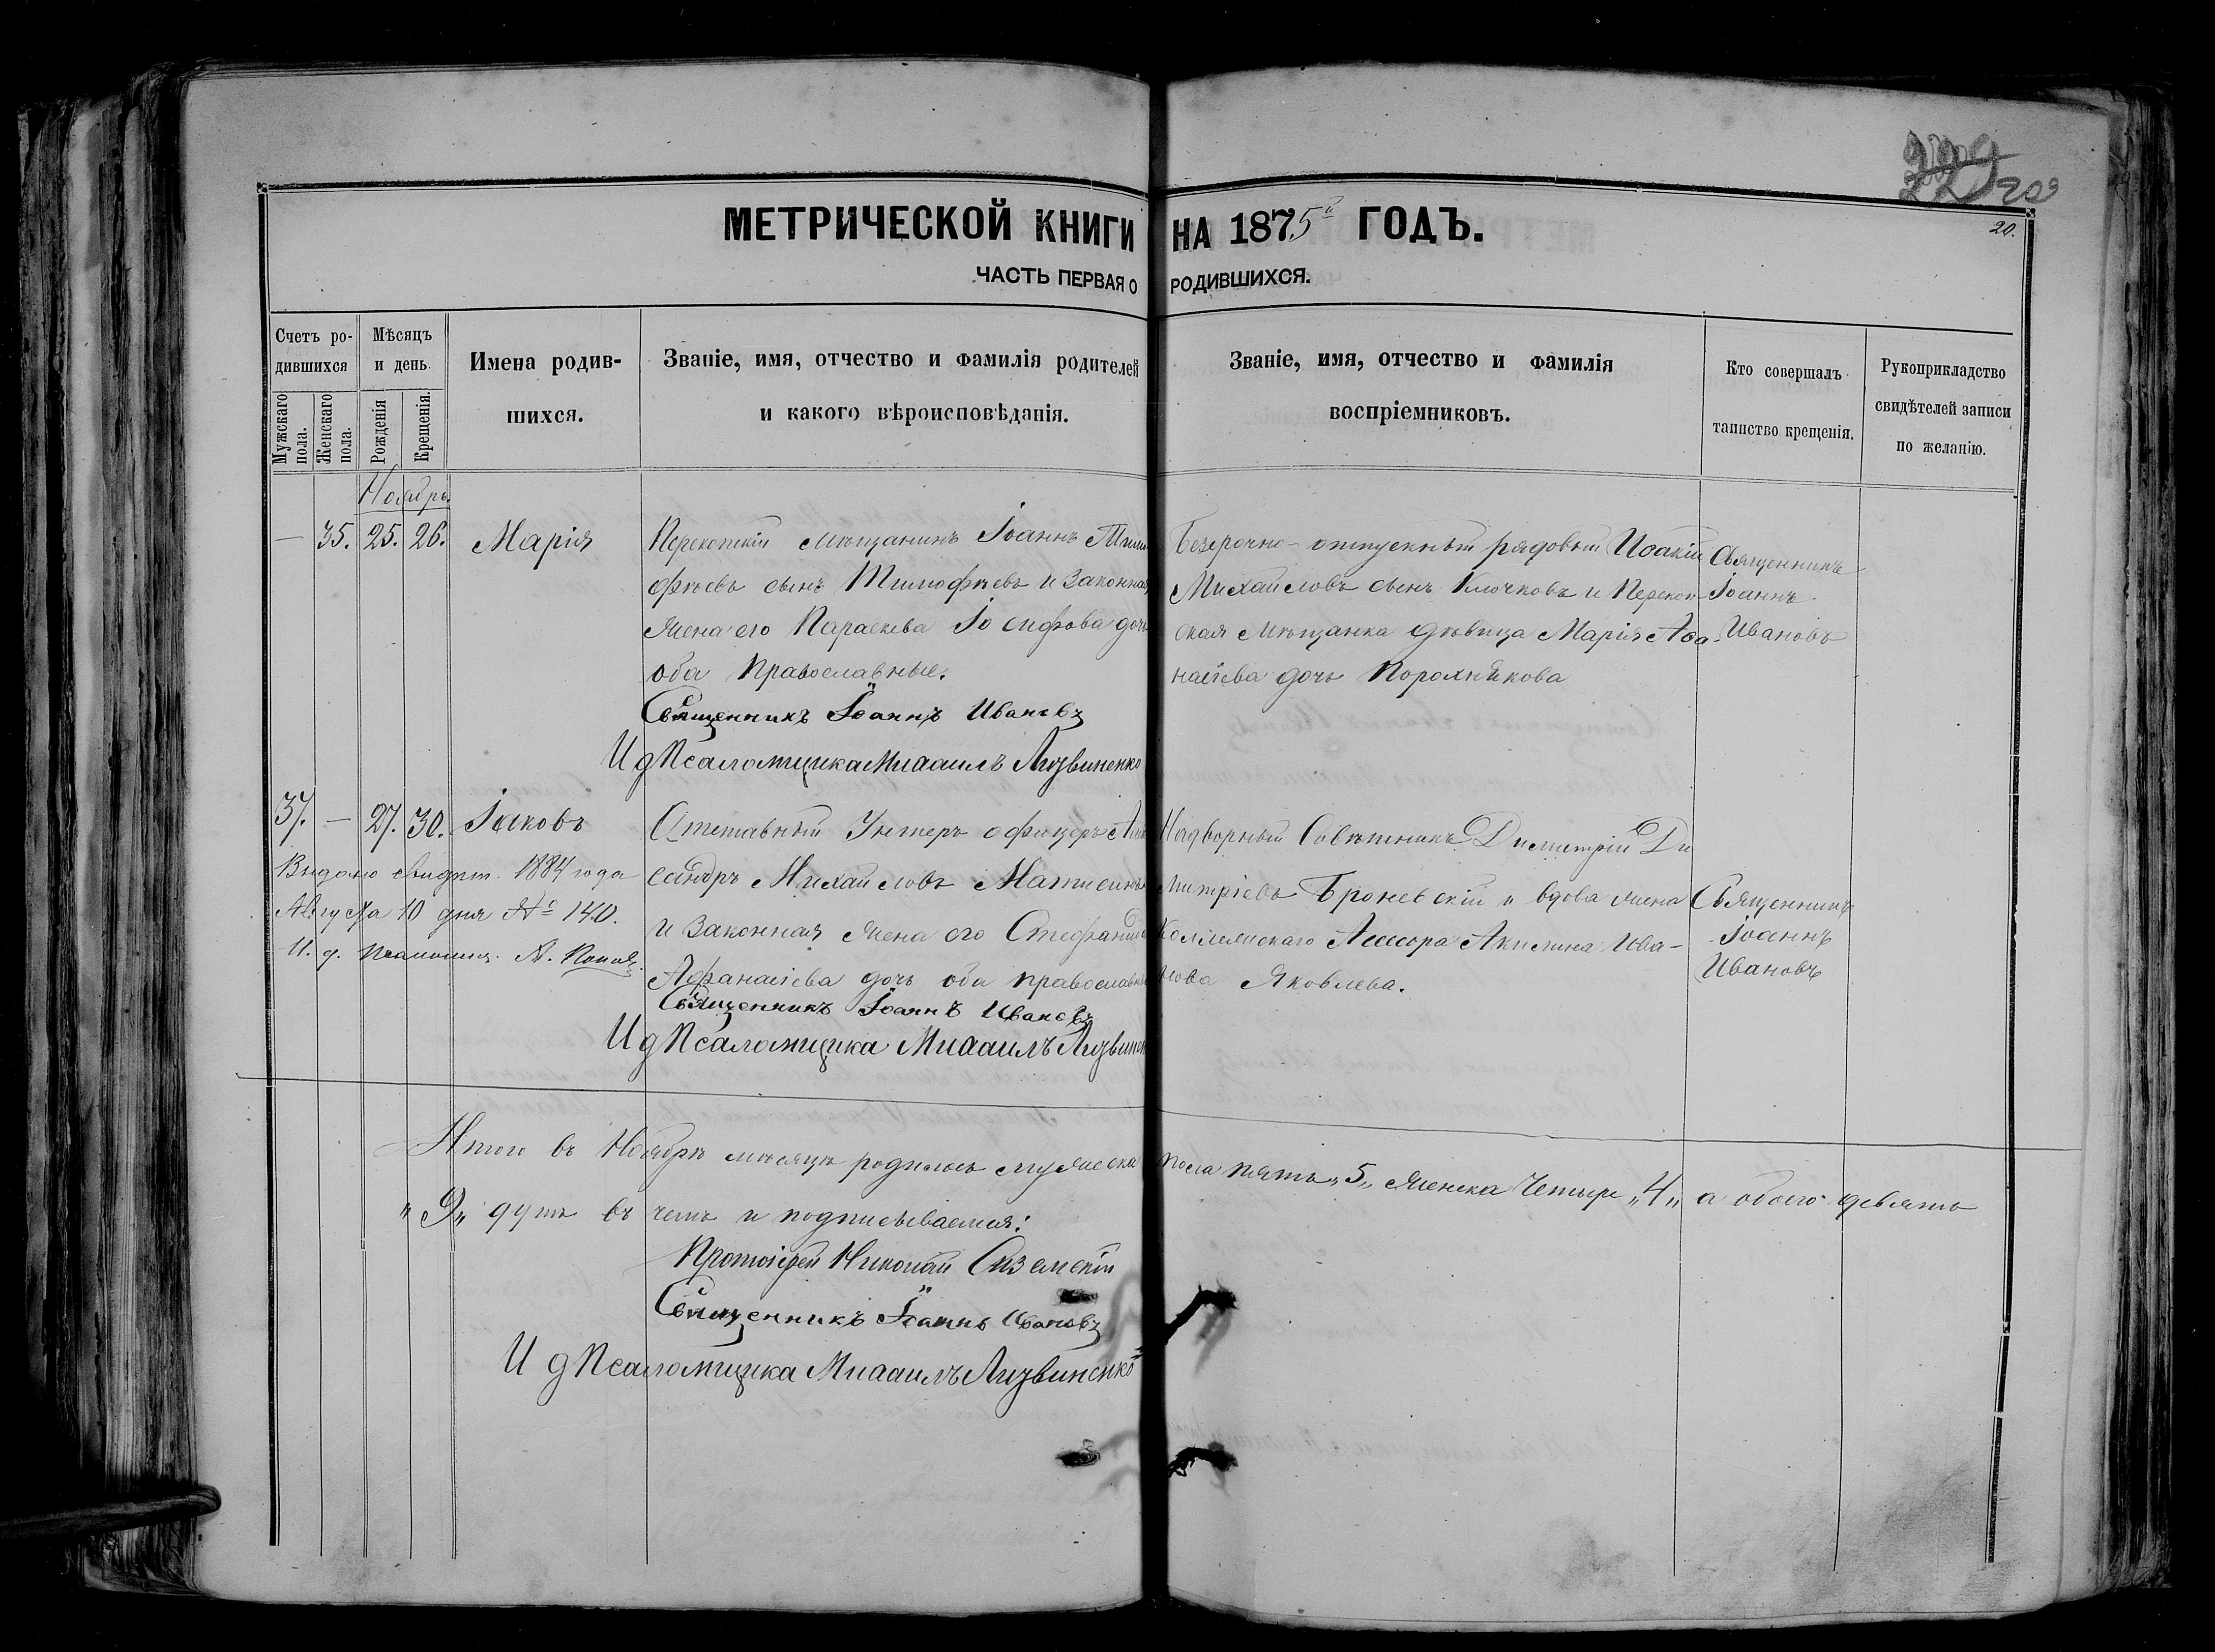 209
20.
МЕТРИЧЕСКОЙ КНИГИ НА 1875й ГОДЪ.
ЧАСТЬ ПЕРВАЯ О РОДИВШИХСЯ.
Счетъ ро-
дившихся
Мужскаго пола.
Женскаго пола.
Мѣсяцъ
и день.
Рожденія
Крещенія.
Имена родив-
шихся.
Званіе, имя, отчество и фамилія родителей
и какого вѣроисповѣданія.
Званіе, имя, отчество и фамилія
воспріемниковъ.
Кто совершалъ
таинство крещенія.
Рукоприкладство
свидѣтелей записи
по желанію.
Ноябрь.
— 35. 25. 26. Марія
Перекопскій мѣщанинъ Іоаннъ Тимо
фѣевъ сынъ Тимофѣевъ и законная
жена его Параскева Іосифова дочь
оба Православные.
Священникъ Іоаннъ Ивановъ
И д Псаломщика Михаилъ Лизвиненко
Безсрочно-отпускный рядовый Иоакій
Михайловъ сынъ Клочковъ и Перекоп-
ская мѣщанка дѣвица Марія Аѳа-
насіева дочь Порохнякова
Священникъ
Іоаннъ
Ивановъ
37. — 27. 30. Іаковъ
Выдано свидѣт. 1884 года
Августа 10 дня № 140.
И. д. псаломщ. А. Поповъ.
Отставный Унтеръ офицеръ Алек
сандръ Михайловъ Матисинъ
и законная жена его Стефанида
Афанасіева дочь оба православные
Священникъ Іоаннъ Ивановъ
И д Псаломщика Михаилъ Лизвиненко
Надворный Совѣтникъ Димитрій Ди
митріевъ Броневскій и вдова жена
Коллежскаго Ассесора Акилина Ива-
нова Яковлева.
Священникъ
Іоаннъ
Ивановъ
Итого въ Ноябрѣ мѣсяцѣ родилось мужеска пола пять „5„ женска четыре „4„ а обоего девять
„9„ душъ въ чемъ и подписываемся:
Протоіерей Николай Сиземскій
Священникъ Іоаннъ Ивановъ
И д Псаломщика Михаилъ Лизвиненко